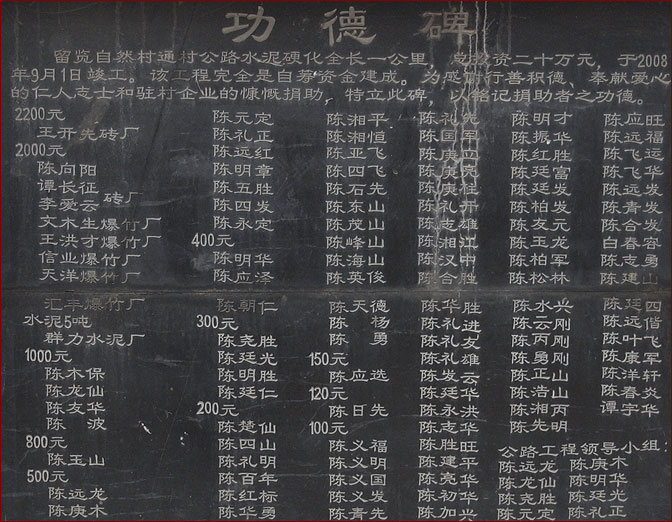 功德碑
留览自然村通村公路水泥硬化全长一公里，总投资二十万元，于2008
年9月1日竣工。该工程完全是自筹资金建成。为感谢行善积德、奉献爱心
的仁人志士和驻村企业的慷慨捐助，特立此碑，以铭记捐助者之功德。
2200元
王开先砖厂
2000元
陈向阳
谭长征
李爱云砖厂
文木生爆竹厂
王洪才爆竹厂
信业爆竹厂
天洋爆竹厂
汇丰爆竹厂
水泥5吨
群力水泥厂
1000元
陈木保
陈龙仙
陈友华
陈波
800元
陈玉山
500元
陈远龙
陈庚木
陈元定
陈礼正
陈远红
陈明章
陈五胜
陈四发
陈永定
400元
陈明华
陈应泽
陈朝仁
300元
陈尧胜
陈廷光
陈明胜
陈廷仁
200元
陈楚仙
陈四山
陈礼明
陈百年
陈红标
陈华勇
陈湘平
陈湘恒
陈亚飞
陈四飞
陈石先
陈东山
陈茂山
陈峰山
陈海山
陈英俊
陈天德
陈杨
陈勇
150元
陈应选
120元
陈日先
100元
陈义福
陈义明
陈义国
陈义发
陈青先
陈礼先
陈国军
陈庚立
陈庚
陈庚任
陈礼开
陈志雄
陈湘江
陈汉中
陈合胜
陈华胜
陈礼进
陈礼友
陈礼雄
陈发云
陈廷华
陈永洪
陈志华
陈胜旺
陈建平
陈亮华
陈初华
陈加兴
陈明才
陈振华
陈红胜
陈廷富
陈廷发
陈柏发
陈友元
陈玉龙
陈柏军
陈松林
陈水兴
陈云刚
陈丙刚
陈勇刚
陈正山
陈浩山
陈湘丙
陈先明
陈应旺
陈远福
陈飞远
陈飞华
陈远发
陈青发
陈合发
白春容
陈志勇
陈建山
陈廷四
陈远偕
陈叶飞
陈康军
陈洋轩
陈春炎
谭宇华
公路工程领导小组：
陈远龙 陈庚木
陈龙仙 陈明华
陈尧胜 陈廷光
陈元定 陈礼正